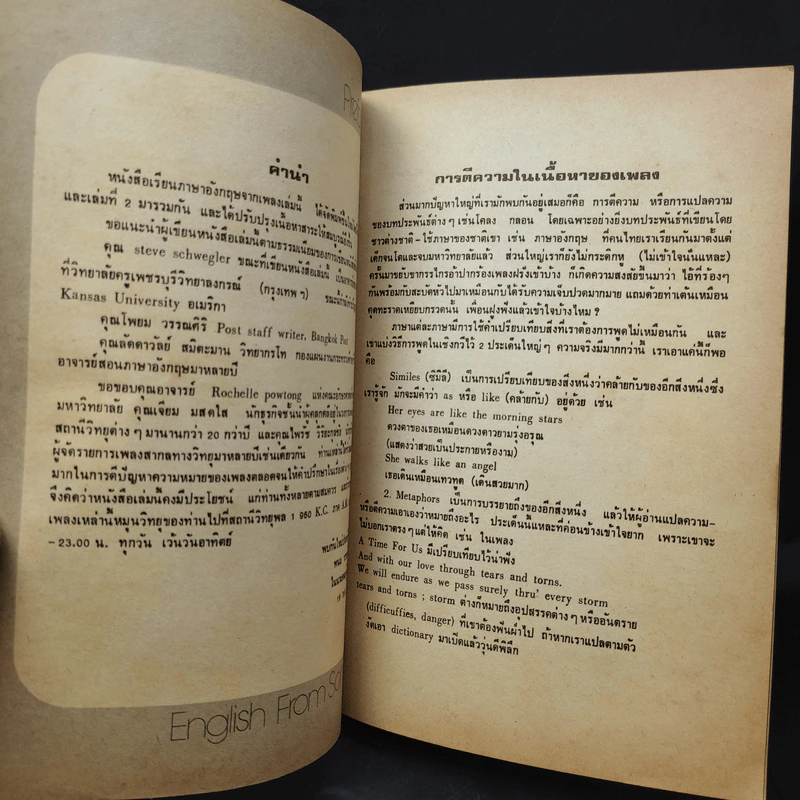 คำนำ
หนังสือเรียนภาษาอังกฤษจากเพลงเล่มนี้ ได้จัดพิมพ์
และเล่มที่ 2 มารวมกัน และได้ปรับปรุงเนื้อหาสาระให้สมบูรณ์
ขอแนะนำผู้เขียนหนังสือเล่มนี้ตามธรรมเนียมของการเขียน
คุณ steve schwegler ขณะที่เขียนหนังสือเล่มนี้
ที่วิทยาลัยครูเพชรบุรีวิทยาลงกรณ์ (กรุงเทพฯ)
Kansas University อเมริกา
คุณโพยม วรรณศิริ Post staff writer, Bangkok Post
คุณลัดดาวัลย์ สมิตะมาน วิทยากรโท กองแผนงานกระทรวง
อาจารย์สอนภาษาอังกฤษมาหลายปี
ขอขอบคุณอาจารย์ Rochelle powtong แห่งคณะอักษรศาสตร์
มหาวิทยาลัย คุณเจียม มสดใส นักธุรกิจชั้นนำผู้คลุกคลีอยู่ในวงการ
สถานีวิทยุต่างๆ มานานกว่า 20 กว่าปี และคุณไพรัช
ผู้จัดรายการเพลงสากลทางวิทยุมาหลายปีเช่นเดียวกัน
มากในการตีปัญหาความหมายของเพลงตลอดจนให้คำปรึกษาใน
จึงคิดว่าหนังสือเล่มนี้คงมีประโยชน์ แก่ท่านทั้งหลายตามสมควร
เพลงเหล่านี้หมุนวิทยุของท่านไปที่สถานีวิทยุพล 1 950 K.C. ภาค A.M.
-23.00 น. ทุกวัน เว้นวันอาทิตย์
English From So
การตีความในเนื้อหาของเพลง
ส่วนมากปัญหาใหญ่ที่เรามักพบกันอยู่เสมอก็คือ การตีความ หรือการแปลความ
ของบทประพันธ์ต่างๆ เช่นโคลง กลอน โดยเฉพาะอย่างยิ่งบทประพันธ์ที่เขียนโดย
ชาวต่างชาติ-ใช้ภาษาของชาติเขา เช่น ภาษาอังกฤษ ที่คนไทยเราเรียนกันมาตั้งแต่
เด็กจนโตและจบมหาวิทยาลัยแล้ว ส่วนใหญ่เราก็ยังไม่กระดิกหู (ไม่เข้าใจนั่นแหละ)
ครั้นมาขยับขากรรไกรอ้าปากร้องเพลงฝรั่งเข้าบ้าง ก็เกิดความสงสัยขึ้นมาว่า ไอ้ที่ร้องๆ
กันพร้อมกับสะบัดหัวไปมาเหมือนกับได้รับความเจ็บปวดมากมาย แถมด้วยท่าเต้นเหมือน
คุดทะราดเหยียบกรวดนั้น เพื่อนฝูงฟังแล้วเข้าใจบ้างไหม ?
ภาษาแต่ละภาษามีการใช้คำเปรียบเทียบสิ่งที่เราต้องการพูดไม่เหมือนกัน และ
เขาแบ่งวิธีการพูดในเชิงกวีไว้ 2 ประเด็นใหญ่ๆ ความจริงมีมากกว่านี้ เราเอาแค่นี้ก็พอ
คือ
Similes (ซิมิลี) เป็นการเปรียบเทียบของสิ่งหนึ่งว่าคล้ายกับของอีกสิ่งหนึ่งซึ่ง
เรารู้จัก มักจะมีคำว่า as หรือ like (คล้ายกับ) อยู่ด้วย เช่น
Her eyes are like the morning stars
ดวงตาของเธอเหมือนดวงดาวยามรุ่งอรุณ
(แสดงว่าสวยเป็นประกายหรืองาม)
She walks like an angel
เธอเดินเหมือนเทวทูต (เดินสวยมาก)
2. Metaphors เป็นการบรรยายถึงของอีกสิ่งหนึ่ง แล้วให้ผู้อ่านแปลความ-
หรือตีความเอาเองว่าหมายถึงอะไร ประเด็นนี้แหละที่ค่อนข้างเข้าใจยาก เพราะเขาจะ
ไม่บอกเราตรงๆ แต่ให้คิด เช่น ในเพลง
A Time For Us มีเปรียบเทียบไว้น่าฟัง
And with our love through tears and torns.
We will endure as we pass surely thru' every storm
tears and torns ; storm ต่างก็หมายถึงอุปสรรคต่างๆ หรืออันตราย
(difficuffies, danger) ที่เขาต้องฟันฝ่าไป ถ้าหากเราแปลตามตัว
งัดเอา dictionary มาเปิดแล้ววุ่นดีพิลึก